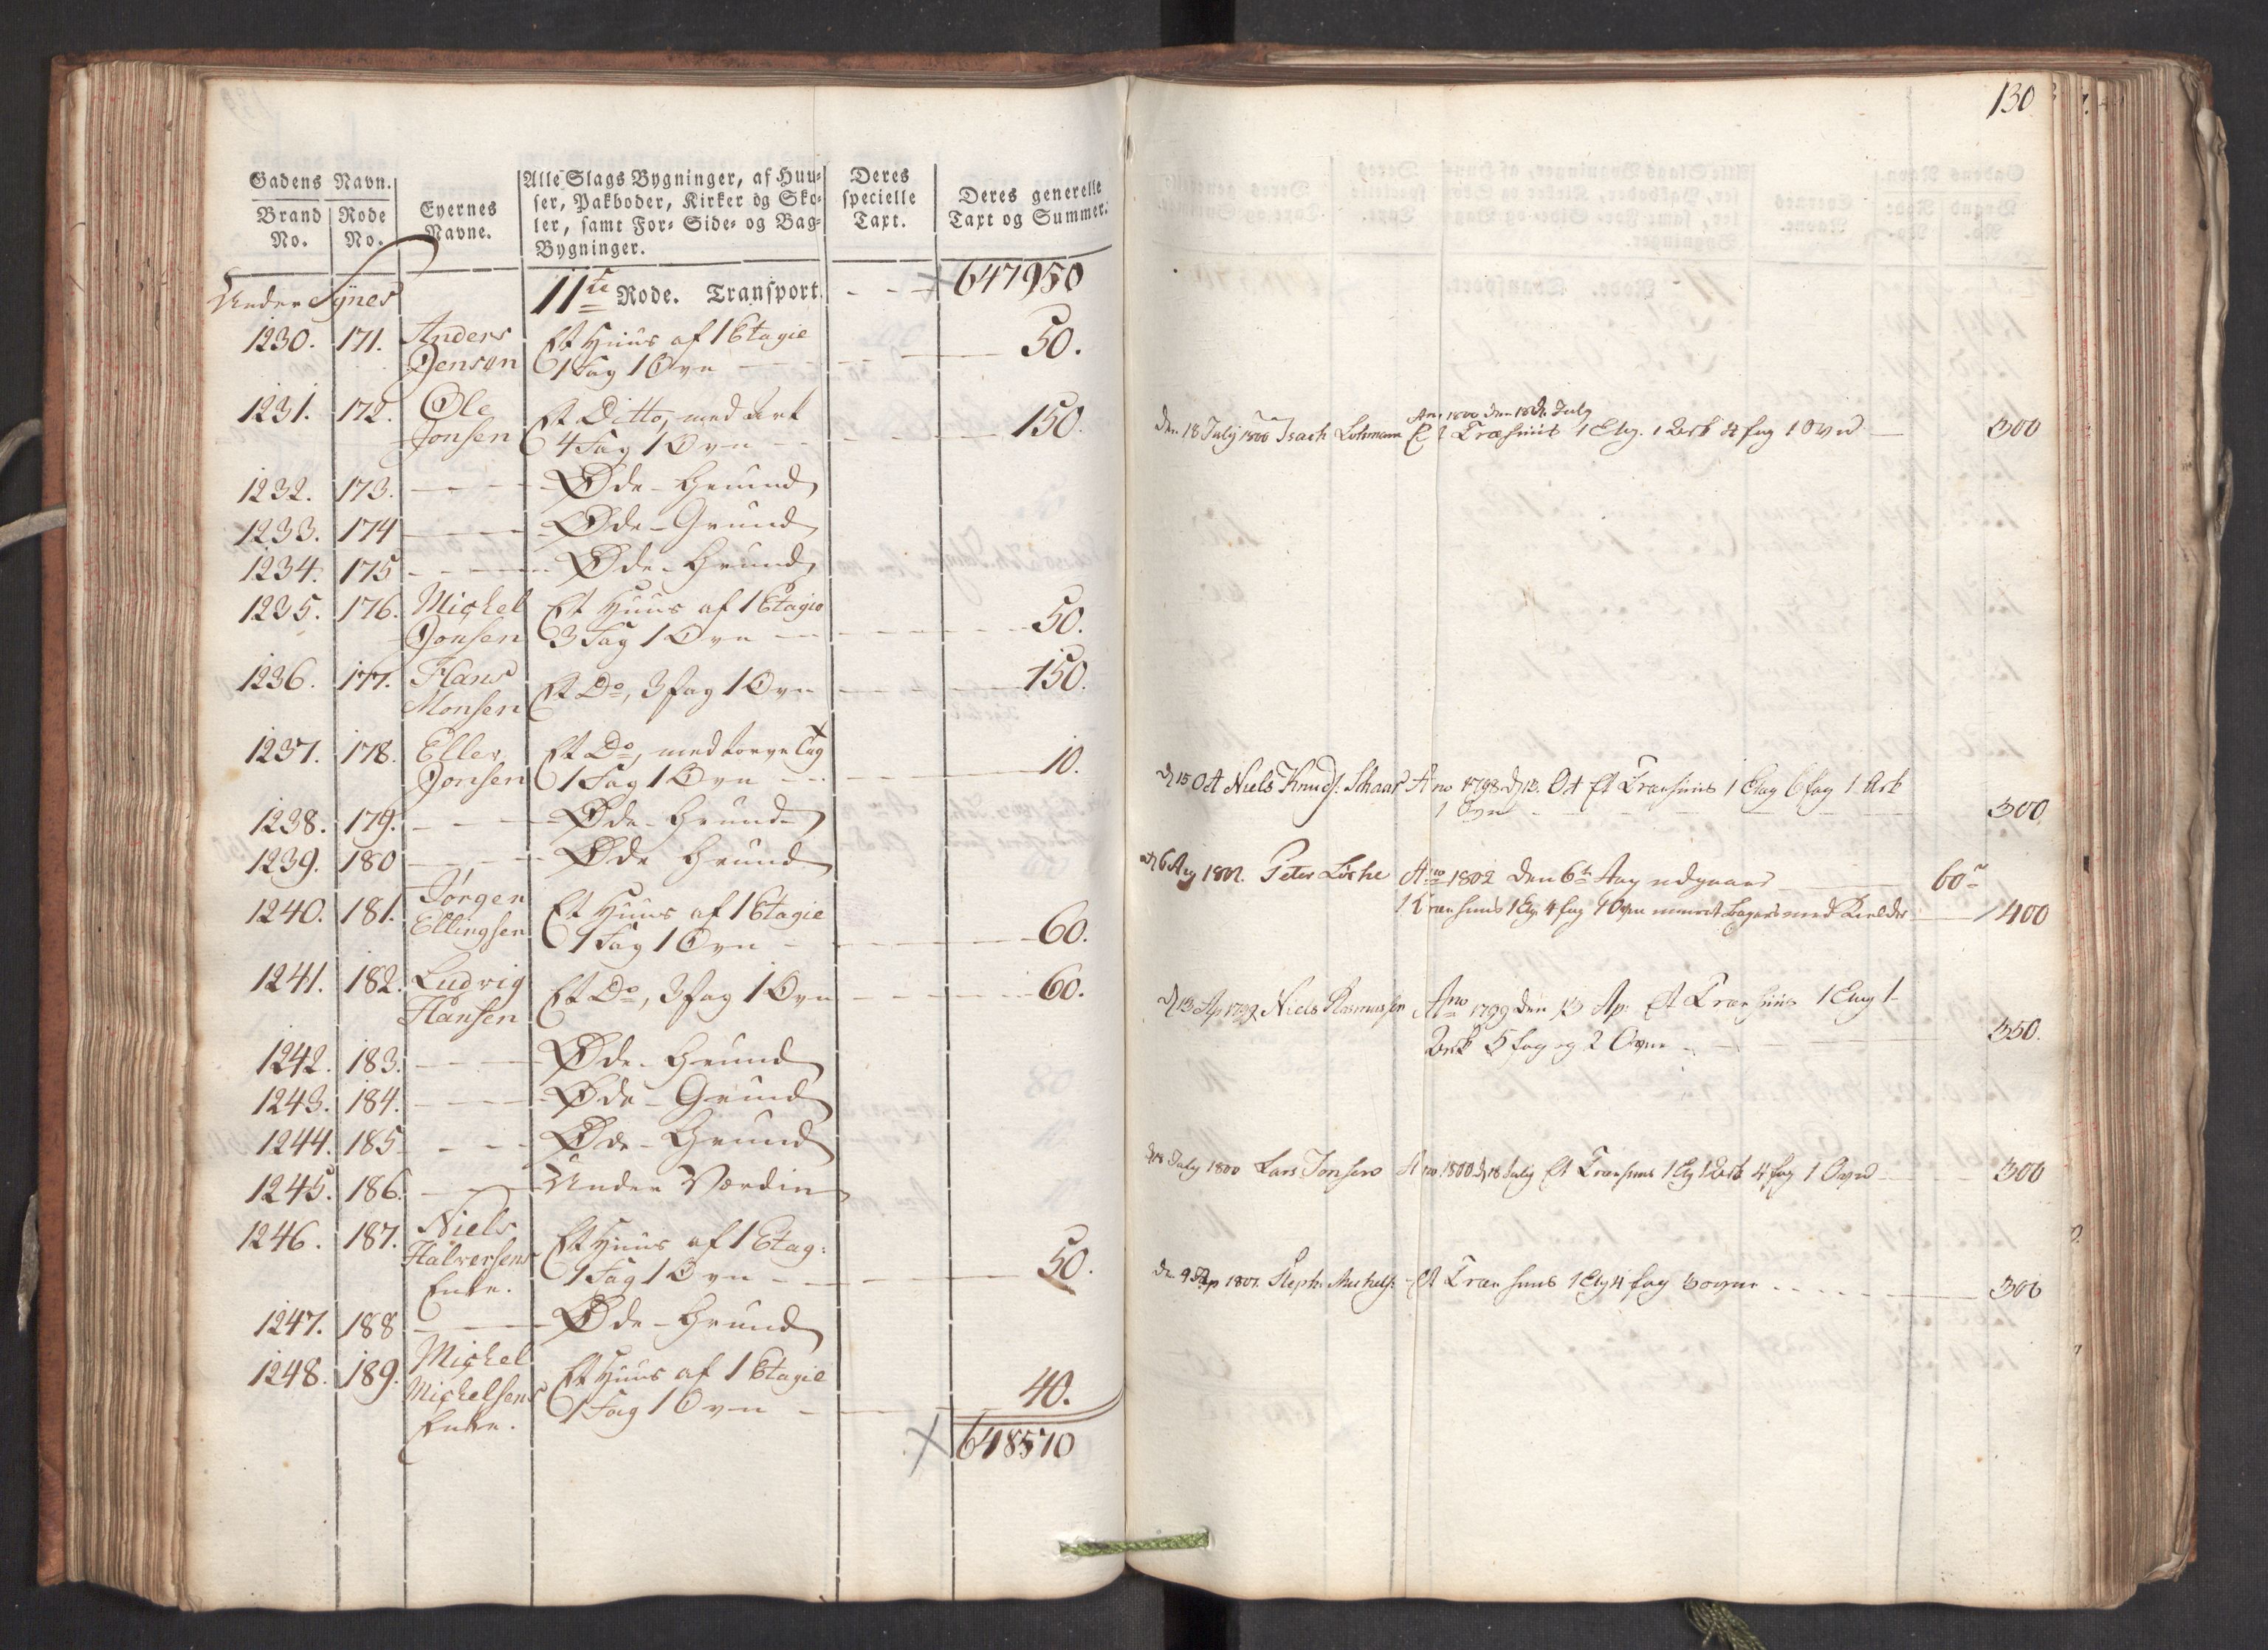 Gadens Navn.
Brand No.
Rode No.
Eyernes Navne.
Alle Slags Bygninger, af Huu-
ser, Pakboder, Kirker og Sko-
ler, samt For- Side- og Bag-
Bygninger.
Deres specielle Taxt.
Deres generelle Taxt og Summer.
Under Synes
11te Rode. Transport. 647950
1230. 171. Anders Et Huus af 1 Etagie
Jensen 1 Fag 1 Ovn 50.
1231. 172. Ole Et Ditto, med Ark
Jonsen 4 Fag 1 Ovn 150.
1232. 173. Øde-Grund
1233. 174 Øde-Grund
1234. 175 Øde-Grund
1235. 176. Michel Et Huus af 1 Etagie
Jonsen 3 Fag 1 Ovn 50.
1236. 177. Hans Et Do, 3 fag 1 Ovn 150.
Monsen
1237. 178. Eller Et Do, med torve Tag
Jonsen 1 Fag 1 Ovn 10.
1238. 179. Øde-Grund
1239. 180 Øde Grund
1240. 181. Jørgen Et Huus af 1 Etagie
Ellingsen 1 Fag 1 Ovn 60.
1241. 182. Ludvig Et Do, 3 fag 1 Ovn 60.
Hansen
1242. 183. Øde-Grund
1243. 184. Øde-Grund
1244. 185 Øde-Grund
1245. 186. Under Værdie
1246. 187. Niels Et Huus af 1 Etag:
Halversens 1 Fag 1 Ovn 50.
Enke.
1247. 188 Øde-Grund
1248. 189. Michel Et Huus af 1 Etagie
Michelsens 1 Fag 1 Ovn 40.
Enke.
648570
130
Ano 1800 den 18de July
den 18 July 1800 Isach Lohmann Et Træhuus 1 Etg. 1 Ark 4 fag 1 Ovn 300
d 15 Oct Niels Knuds: Skaar Ano 1798 d 13. Oct Et Træhuus 1 Etag 6 fag 1 Ark
1 Ovn 300
d 6 Aug 1802. Peter Ano 1802 den 6te Aug udgaaer 60
1 Træehuus 1 Etg 4 fag 1 Ovn muret med Kielder 400
d 13 Ap 1799 Niels Rasmussen Ano 1799 den 13 Ap: Et Træehuus 1 Etag 1
Ark 5 fag og 2 Ovne 350.
d 18 July 1800 Lars Jonsen Ano 1800 d 18 July Et Træehuus 1 Etg 1 Ark 4 fag 1 Ovn 300
den 9 Ap 1801. Steph: Michels: Et Træe huus 1 Etg 4 fag 3 ovne 300